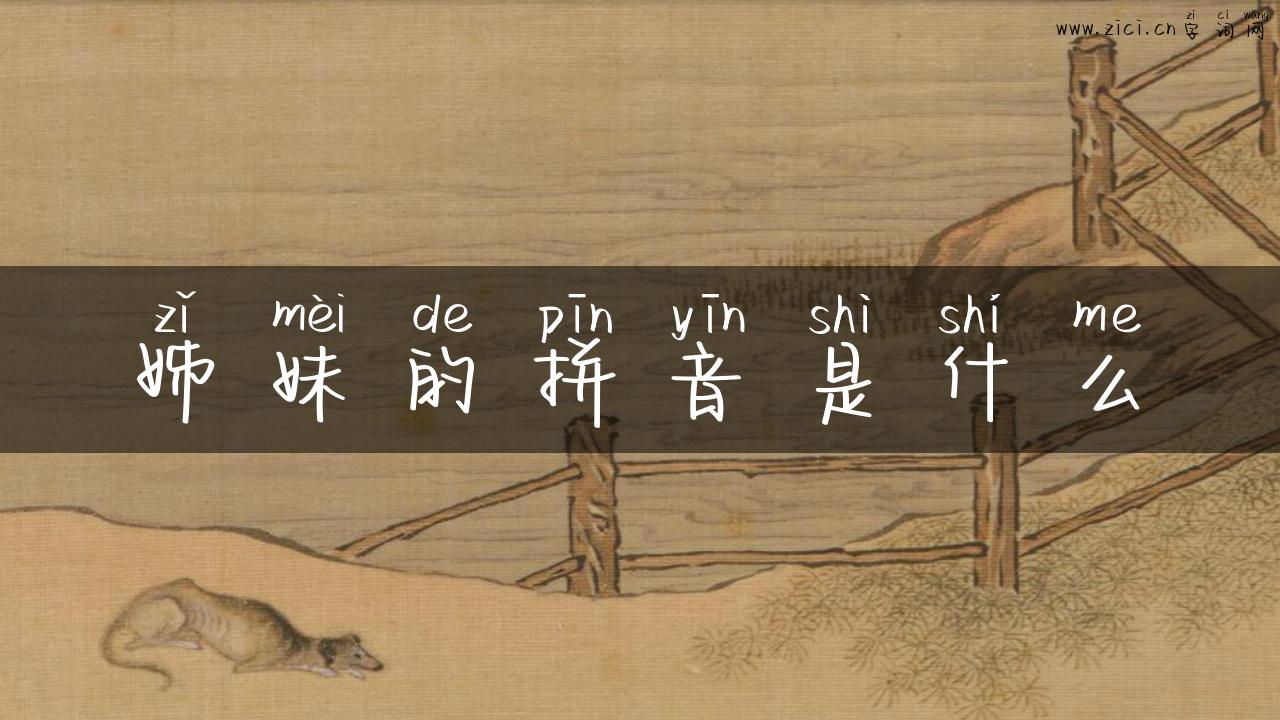 zi ci wang
www.zici.cn字词网
zǐ mèi de pīn yīn shì shí me
姊妹的拼音是什么